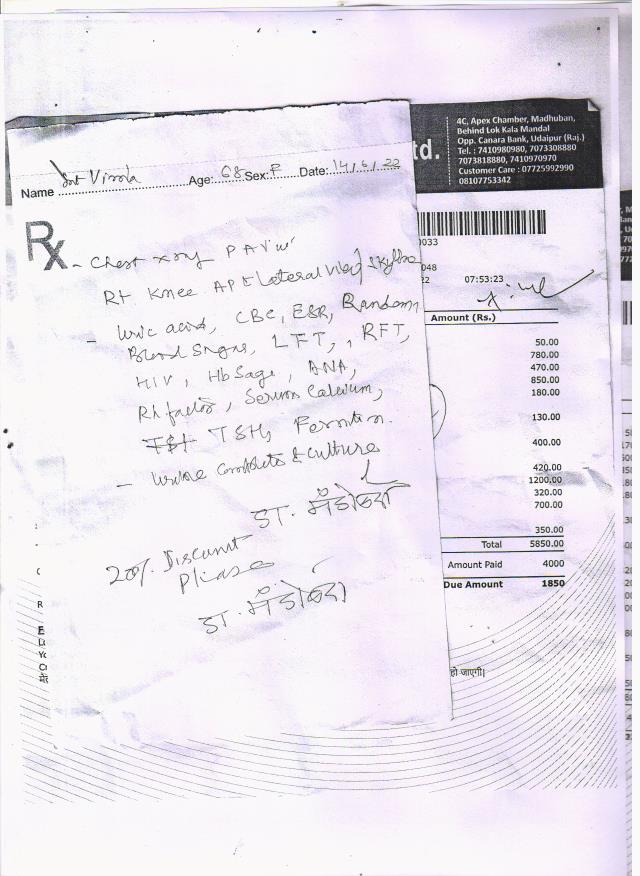 4C, Apex Chamber, Madhuban,
Behind Lok Kala Mandal
Opp. Canara Bank, Udaipur (Raj.)
Tel. : 7410980980, 7073308880
7073818880, 7410970970
Customer Care : 07725992990
08107753342
td.
Name Smt Age: 68 Sex: F Date: 14/6/22
0033
048
22 07:53:23
Rx
- Chest xray PA View
Rt. Knee AP & Lateral View
- Uric acid, CBC, ESR, Random
Blood Sugar, LFT, , RFT,
HIV, HbSag, ANA,
Rh factor, Serum Calcium,
TSH,
- Urine Complete & Culture
डा.
20% Discount
Please
डा.
Amount (Rs.)
50.00
780.00
470.00
850.00
180.00
130.00
400.00
420.00
1200.00
320.00
700.00
350.00
Total 5850.00
Amount Paid 4000
Due Amount 1850
हो जाएगी।